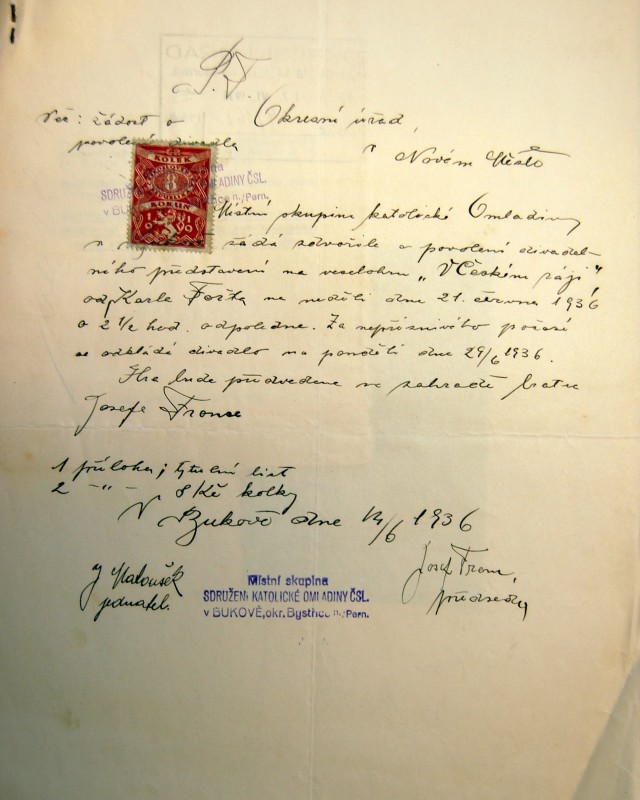 P.T.
Věc: žádost o
povolení divadla
Okresní úřad
v Novém Městě
KOLEK
8
KORUN
SDRUŽENÍ OMLADINY ČSL.
v BUKOVÉ Bystřice n./Parn.
Místní skupina katolické Omladiny
v žádá zdvořile o povolení divadel-
ního představení na veselohru „V Českém ráji"
od Karla Fořta na neděli dne 21. června 1936
o 2 1/2 hod. odpoledne. Za nepříznivého počasí
se odkládá divadlo na pondělí dne 29/6 1936.
Hra bude předvedena na zahradě bratra
Josefa France
1 příloha; tytulní list
2 -"- 8 Kč kolky
V Bukové dne 14/6 1936
J Matoušek
jednatel.
Místní skupina
SDRUŽENÍ KATOLICKÉ OMLADINY ČSL.
v BUKOVÉ, okr. Bystřice n./Parn.
Josef Franc,
předseda